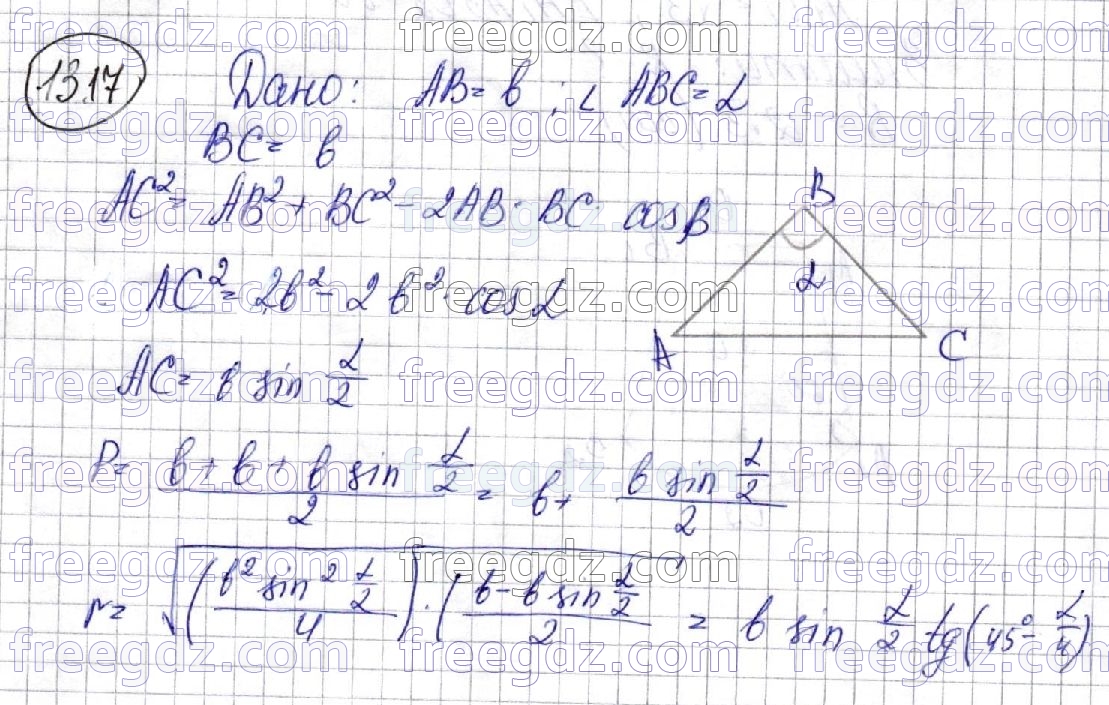 13.17 Дано: AB = b ; ∠ ABC = α
BC = b
AC² = AB² + BC² - 2AB · BC · cosB
AC² = 2b² - 2b² · cos α
AC = b sin α/2
P = (b + b + b sin α/2)/2 = b + (b sin α/2)/2
r = √((b² sin² α/2)/4) · ((b - b sin α/2)/2) = b sin α/2 tg(45° - α/4)
B
α
A
C
freegdz.com